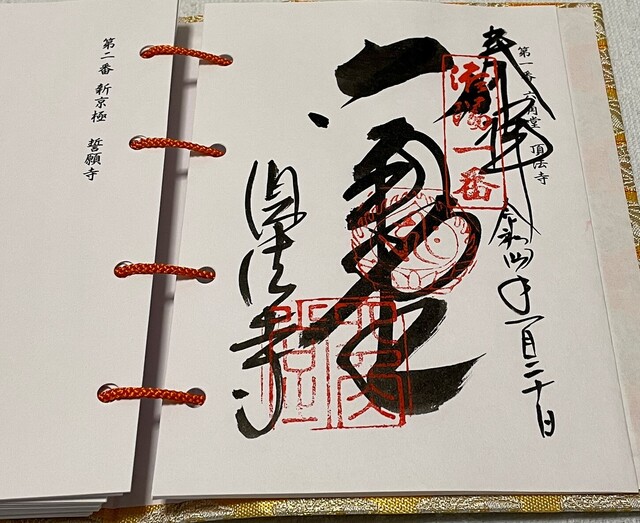 第一番 六角堂 頂法寺
奉拝 令和四年一月二十日
洛陽一番
六角堂
頂法寺
第二番 新京極 誓願寺